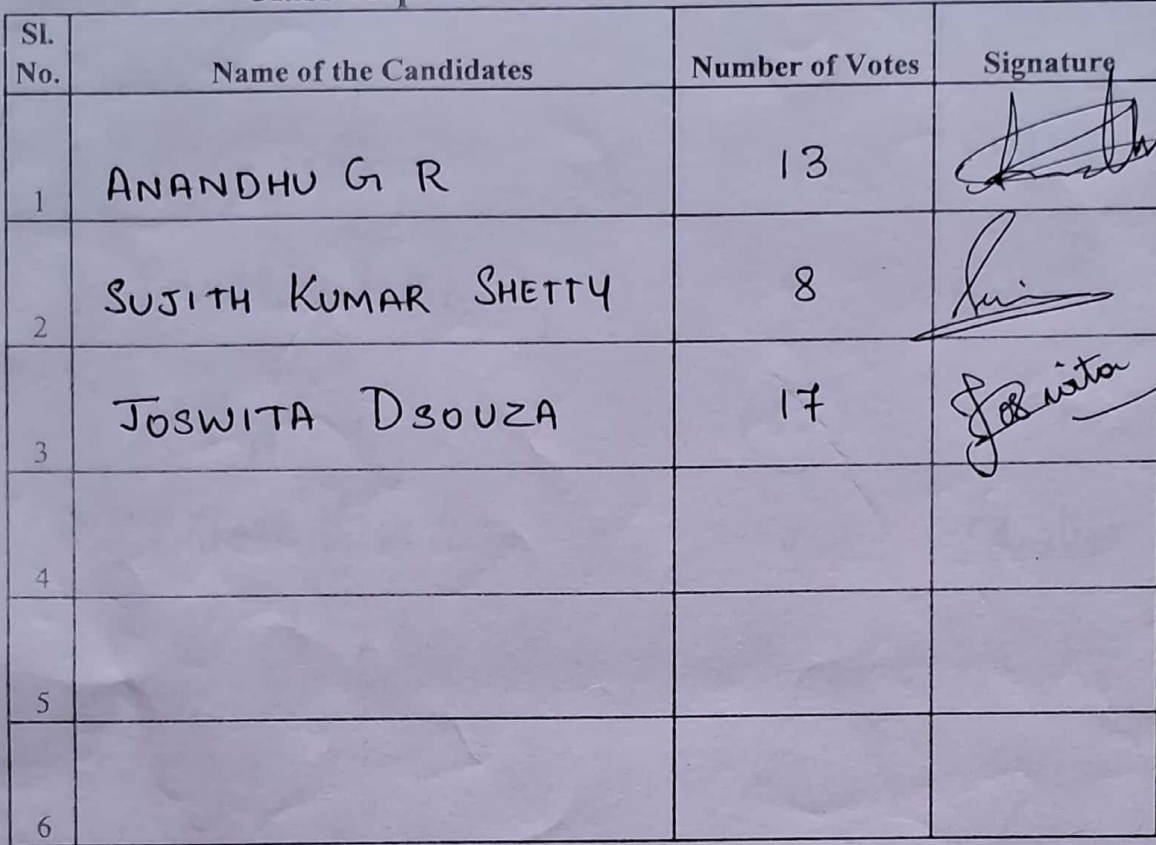 Sl. No. Name of the Candidates Number of Votes Signature
1 ANANDHU G R 13
2 SUJITH KUMAR SHETTY 8
3 JOSWITA DSOUZA 17 Joswita
4
5
6